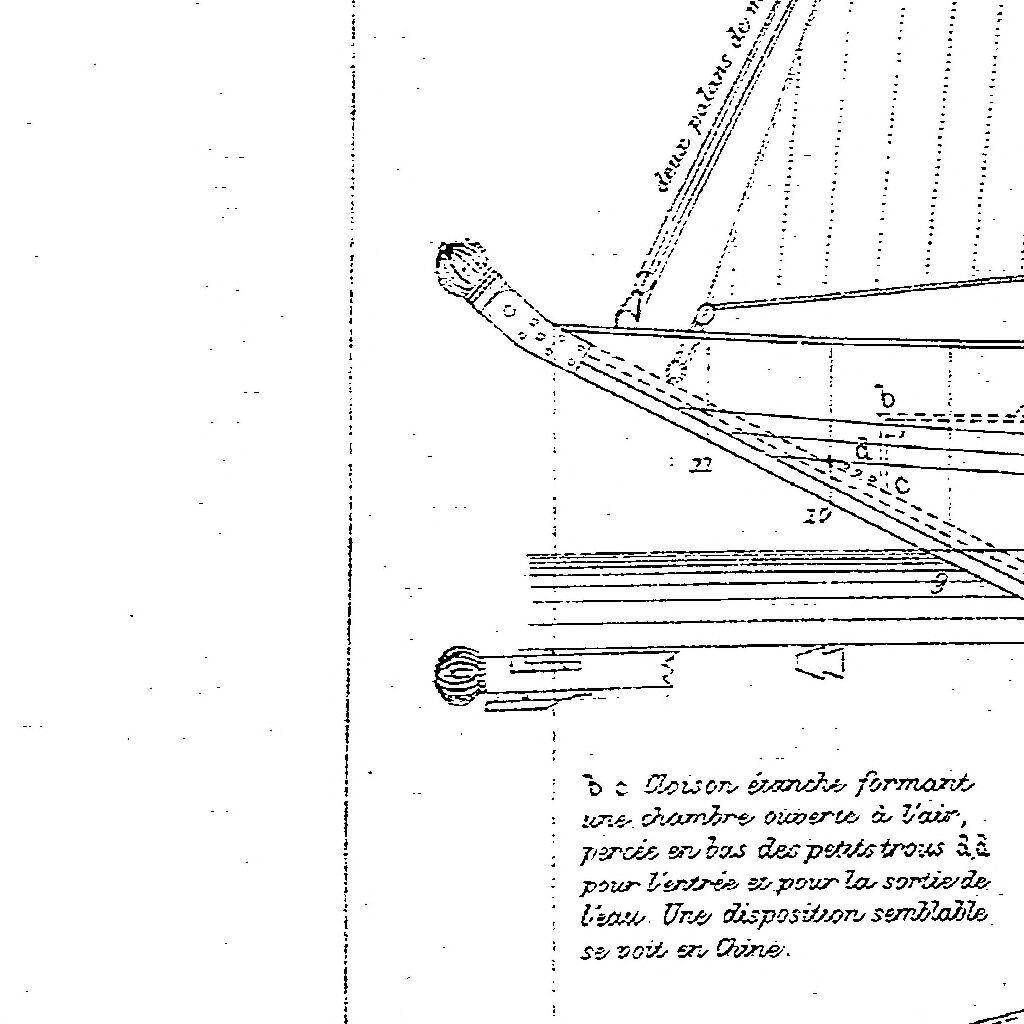 deux palans de
b
a
c
11
10
9
b c Cloison étanche formant
une chambre ouverte à l'air,
percée en bas des petits trous a, a
pour l'entrée et pour la sortie de
l'eau. Une disposition semblable
se voit en Chine.